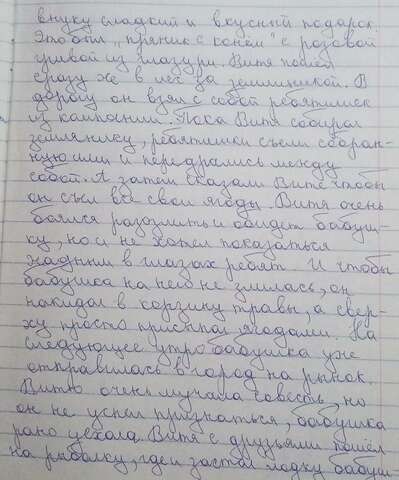 внуку сладкий и вкусный подарок.
Это был „пряник с конём" с розовой
гривой из глазури. Витя пошёл
сразу же в лес за земляникой. В
дорогу он взял с собой ребятишек
из компании. Пока Витя собирал
землянику, ребятишки съели собран-
ную ими и передрались между
собой. А затем сказали Вите чтобы
он съел все свои ягоды. Витя очень
боялся разозлить и обидет бабуш-
ку, но и не хотел показаться
жадным в глазах ребят. И чтобы
бабушка на него не злилась, он
накидал в корзину травы, а свер-
ху просто присыпал ягодами. На
следующее утро бабушка уже
отправилась в город на рынок.
Витю очень мучала совесть, но
он не успел признаться, бабушка
рано уехала. Витя с друзьями пошёл
на рыбалку, где и застал лодку бабуш-